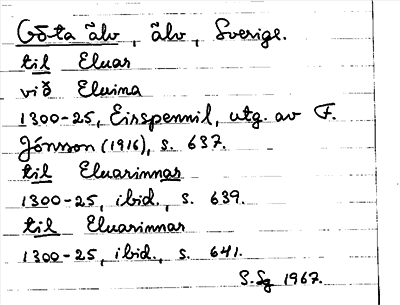 Göta älv, älv, Sverige.
til Eluar
við Eluina
1300-25, Eirspennil, utg. av F.
Jónsson (1916), s. 637.
til Eluarinnar
1300-25, ibid., s. 639.
til Eluarinnar
1300-25, ibid., s. 641.
S.Sg 1967.